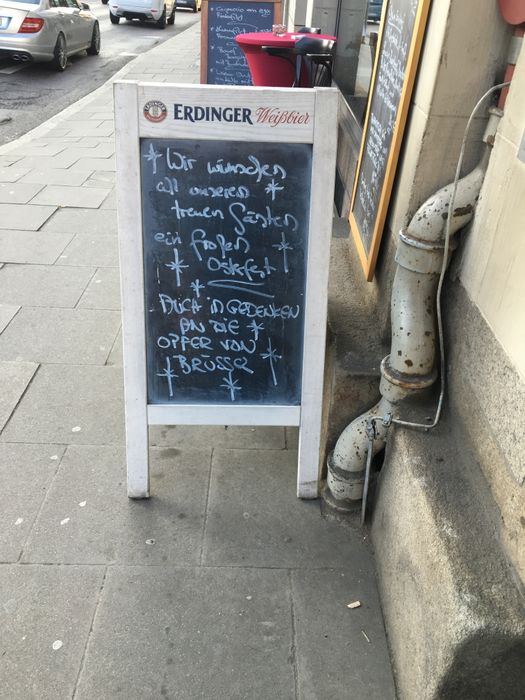 ERDINGER Weißbier
Wir wünschen
all unseren
treuen Gästen
ein frohes
Osterfest
AUCH IN GEDENKEN
AN DIE
OPFER VON
BRÜSSEL